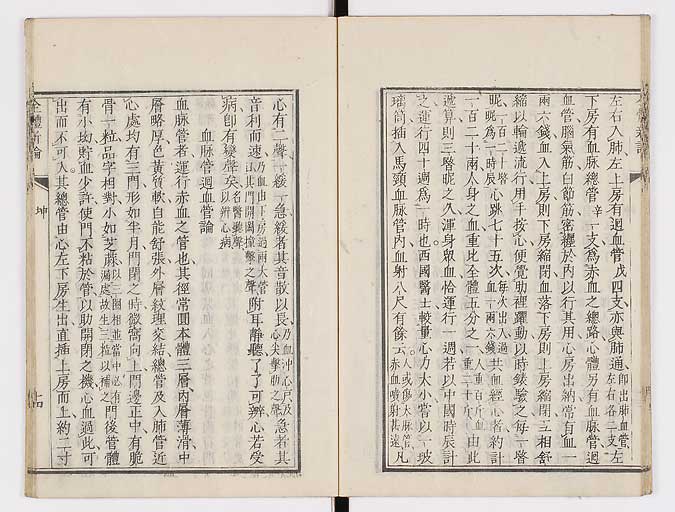 左右入肺左上房有迴血管戊四支亦與肺通卽出肺血管左右各二支左
下房有血脉總管辛一支為赤血之總路心體另有血脉管週
血管腦氣筋白節筋密纒於內以行其用心房出納常有血一
兩六錢血入上房則下房縮閉血落下房則上房縮閉互相舒
縮以輪遞流行用手按心便覺肋裡躍動以時錶驗之每一晷
昵一百二十昵為一時辰心跳七十五次每次出入過血一兩六錢共血經心者約計
一百二十兩人身之血重比全體五分之一人重百斤血重二十斤由此
遞算則三晷昵之久渾身眾血恰運行一週若以中國時辰計
之運行四十週為一時也西國醫士較量心力大小嘗以一玻
璃筒插入馬頸血脉管內血射八尺有餘云人或傷大脉管赤血噴射甚遠凡
心有二聲一緩一急緩者其音散以長乃血冲心戸及心尖擊動之聲急者其
音利而速乃血出下房過兩大管試其門開闔撞擊之聲附耳靜聽了了可辨心若受
病卽有變聲矣名醫聽聲以辨心病
血脉管迴血管論
血脉管者運行赤血之管也其徑常圓本體三層內層薄滑中
層略厚色黃質軟自能舒張外層紋理交結總管及入肺管近
心處均有三門形如半月門閉之時微窩向上門邊正中有脆
骨一粒品字相對小如芝蔴以三圈相並當中必有漏處故生三粒以補之門後管體
有小坳貯血少許使門不粘於管以助開閉之機心血過此可
出而不可入其總管由心左下房生出直插上房而上約二寸
全體新論
坤